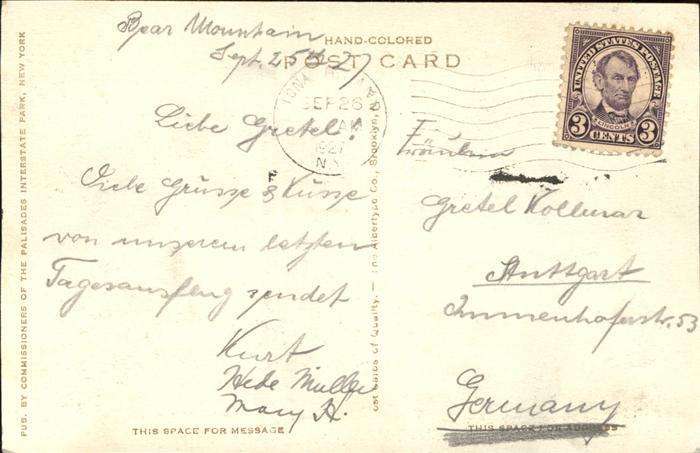 Bear Mountain
Sept. 25th 27
HAND-COLORED
POST CARD
SEP 26
AM
1927
N.Y.
Liebe Gretel!
Liebe Grüsse & Küsse
von unserem letzten
Tagesausflug sendet
Kurt
Hede Müller
Mary H.
THIS SPACE FOR MESSAGE
PUB. BY COMMISSIONERS OF THE PALISADES INTERSTATE PARK, NEW YORK
Post Cards of Quality. — The Albertype Co., Brooklyn, N.Y.
UNITED STATES POSTAGE
LINCOLN
3 CENTS 3
Fräulein
Gretel Kollmar
Stuttgart
Immenhoferstr. 53
Germany
THIS SPACE FOR ADDRESS